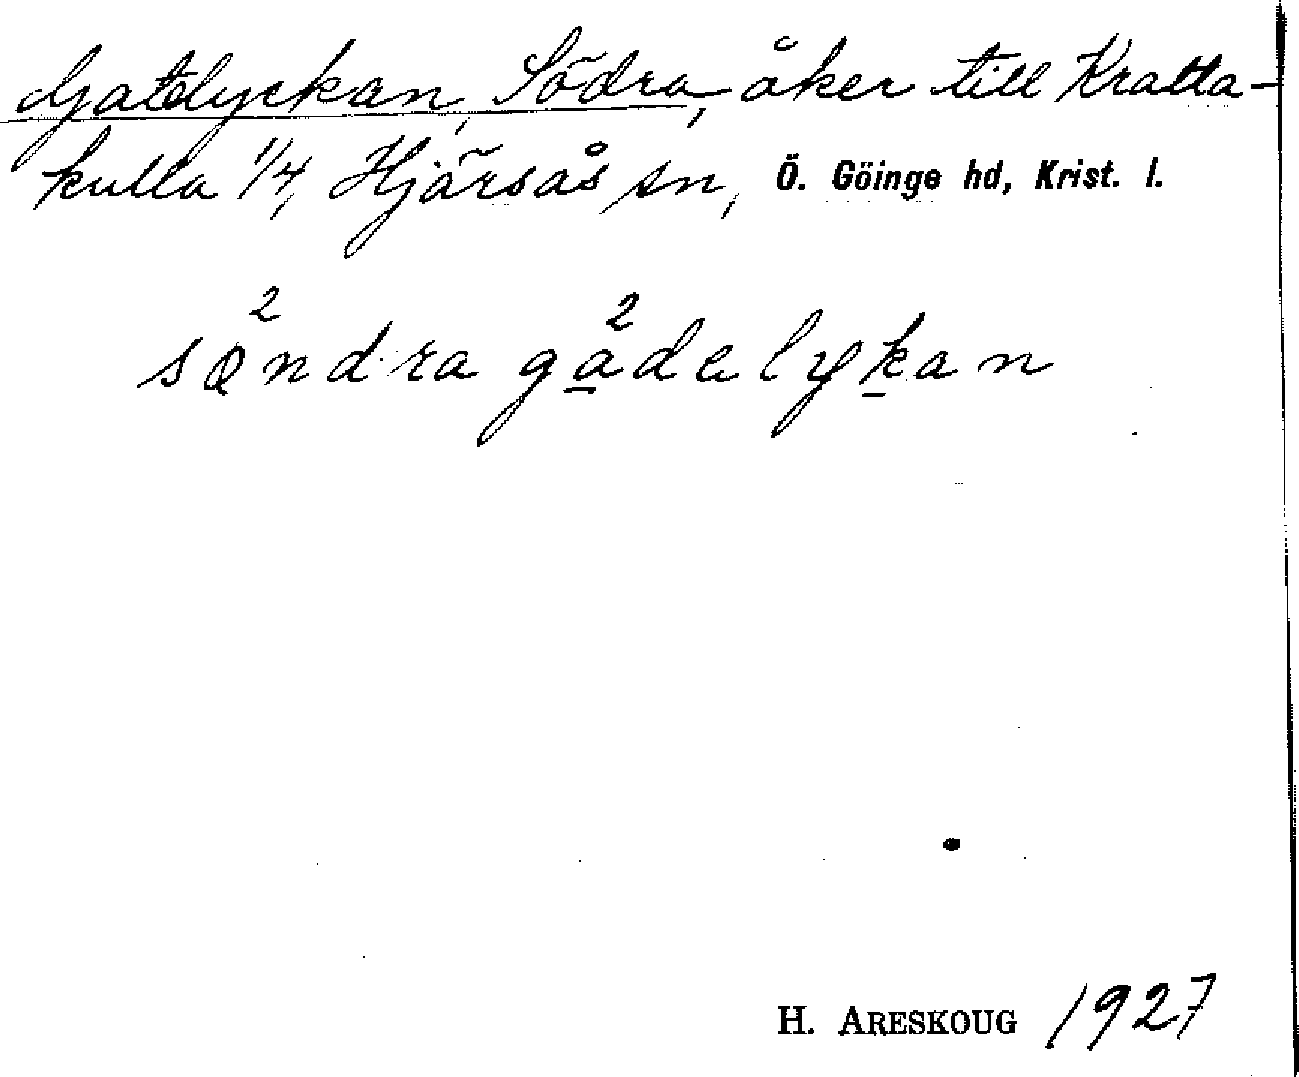 Gatelyckan, Södra, åker till Kratta-
kulla 1/4, Hjärsås sn, Ö. Göinge hd, Krist. l.
2 2
söndra gadelykan
H. ARESKOUG 1927